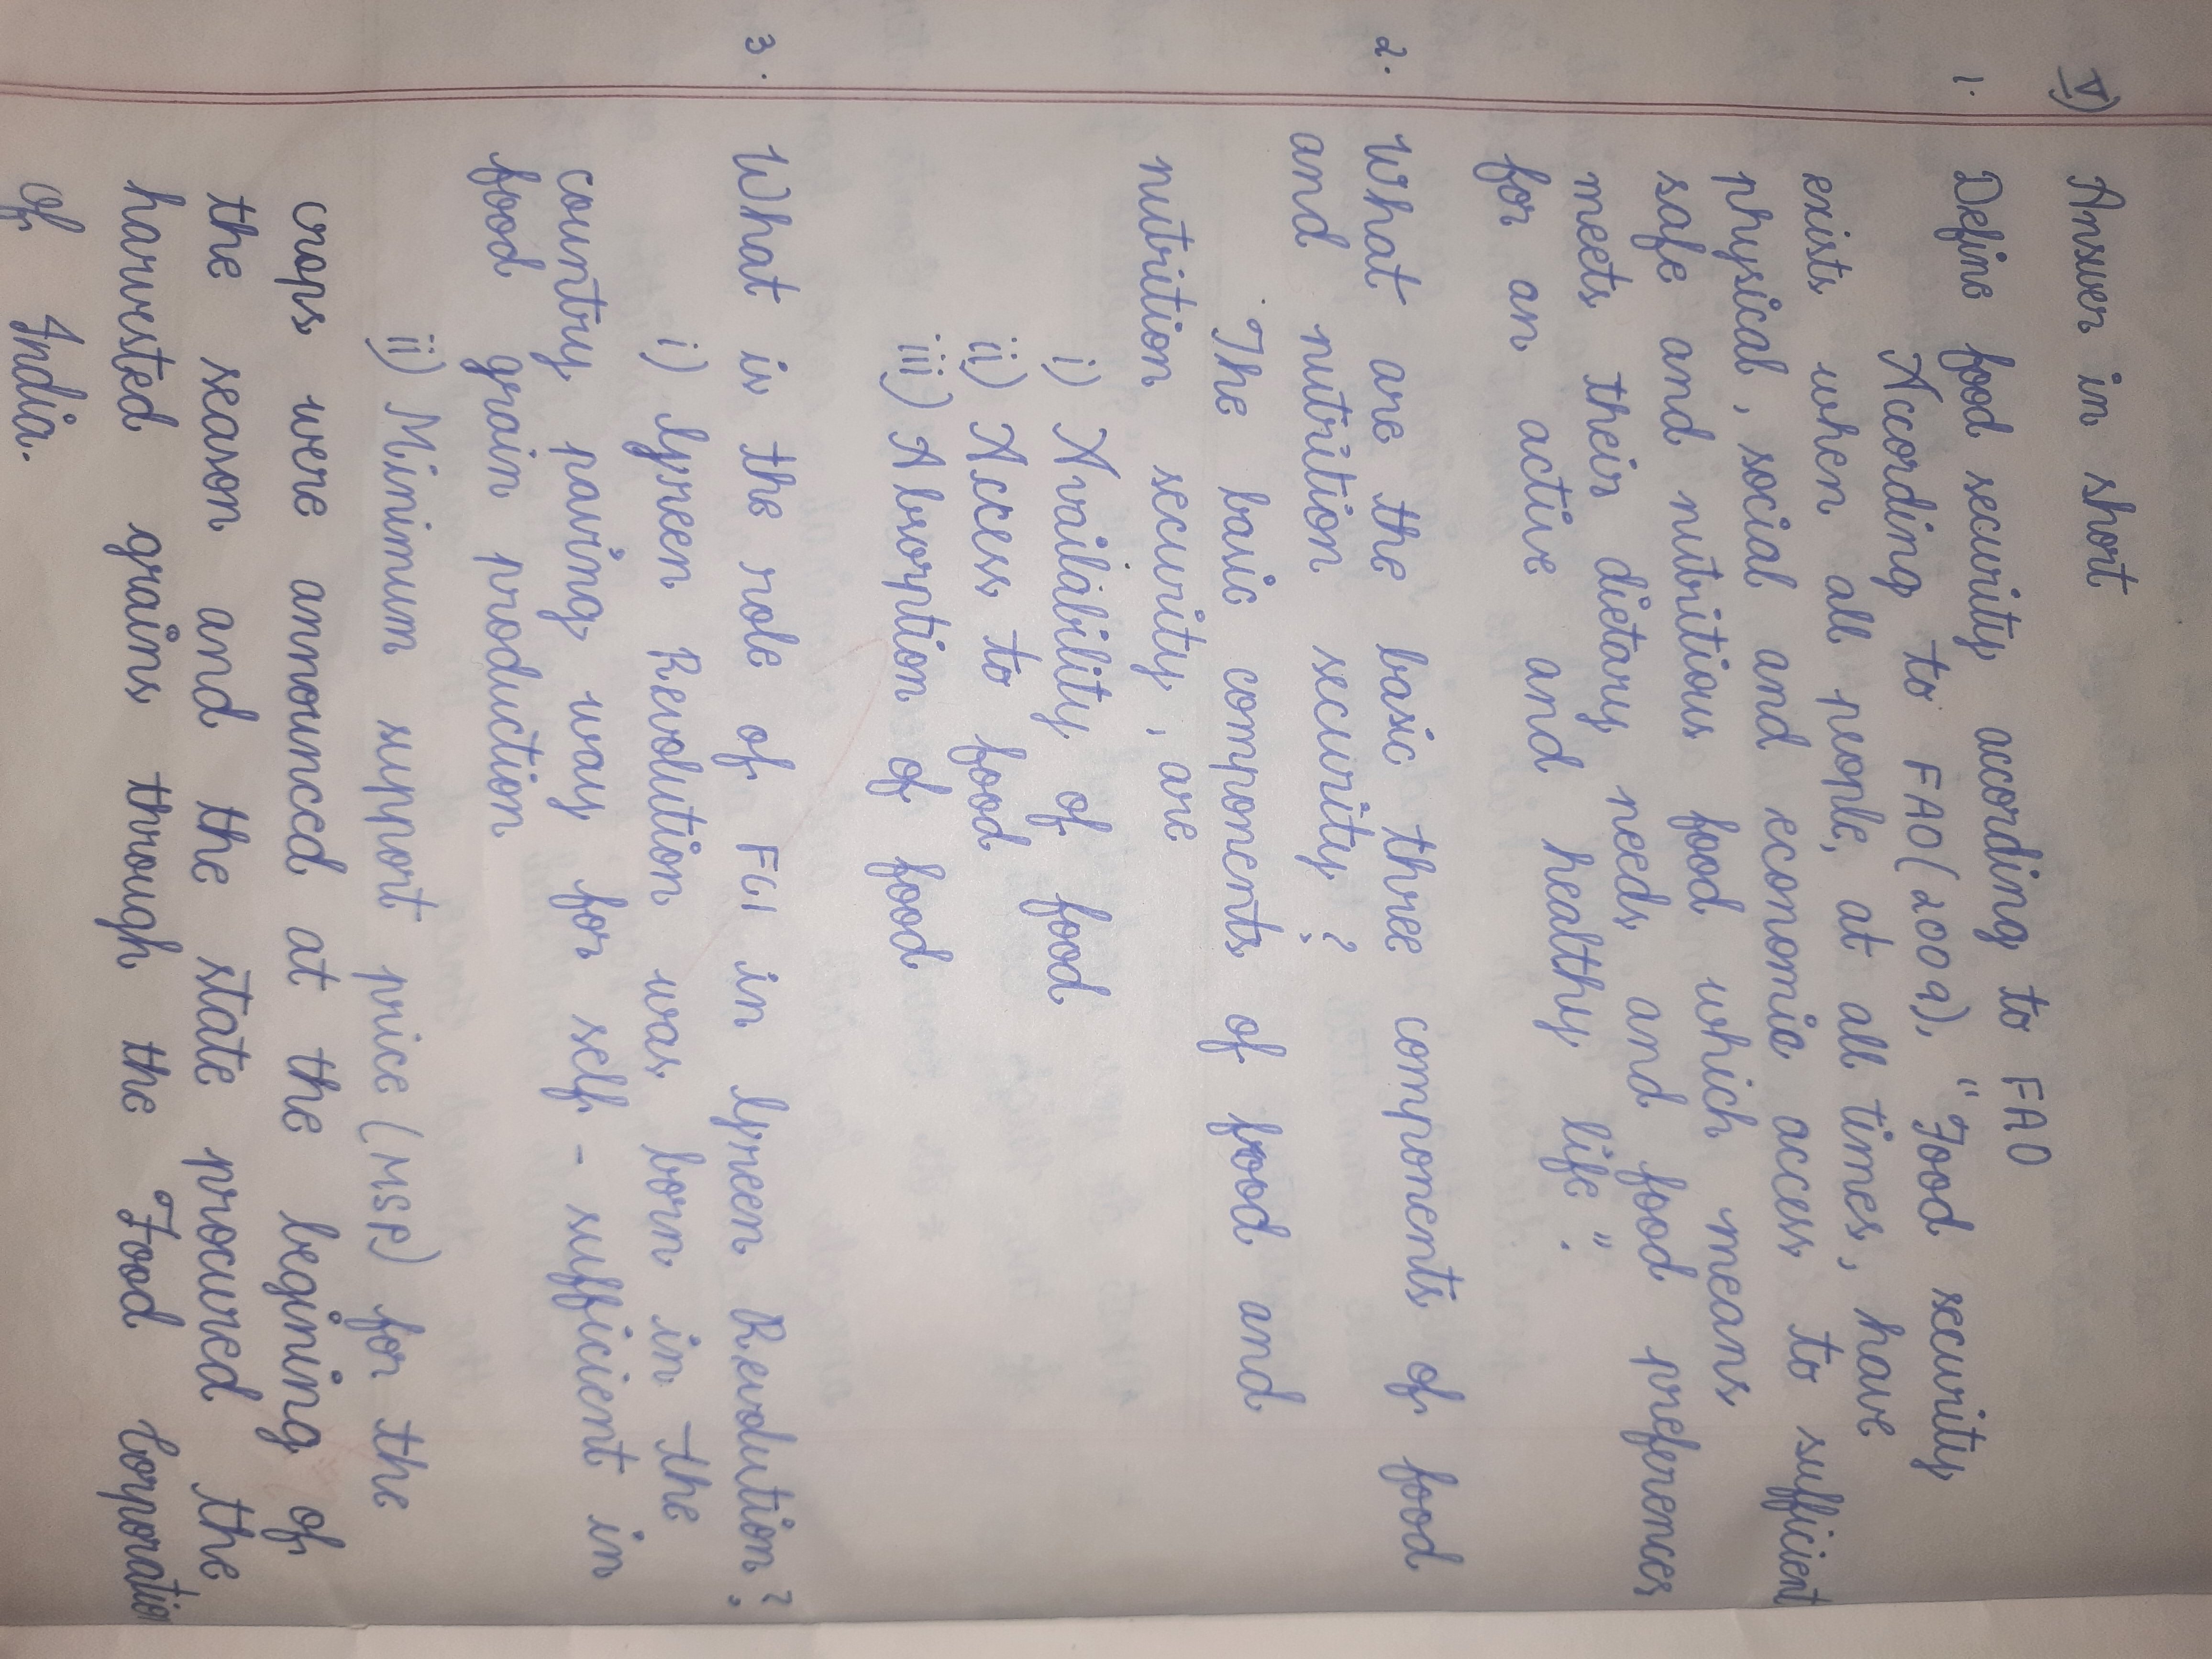 V) Answer in short
1. Define food security according to FAO
According to FAO (2009), "Food security
exists when all people, at all times, have
physical, social and economic access to sufficient
safe and nutritious food which means
meets their dietary needs and food preferences
for an active and healthy life".
2. What are the basic three components of food
and nutrition security?
The basic components of food and
nutrition security, are
i) Availability of food
ii) Access to food
iii) Absorption of food
3. What is the role of FCI in Green Revolution?
i) Green Revolution was born in the
country paving way for self-sufficient in
food grain production
ii) Minimum support price (MSP) for the
crops were announced at the begining of
the season and the state procured the
harvested grains through the Food Corporation
of India.